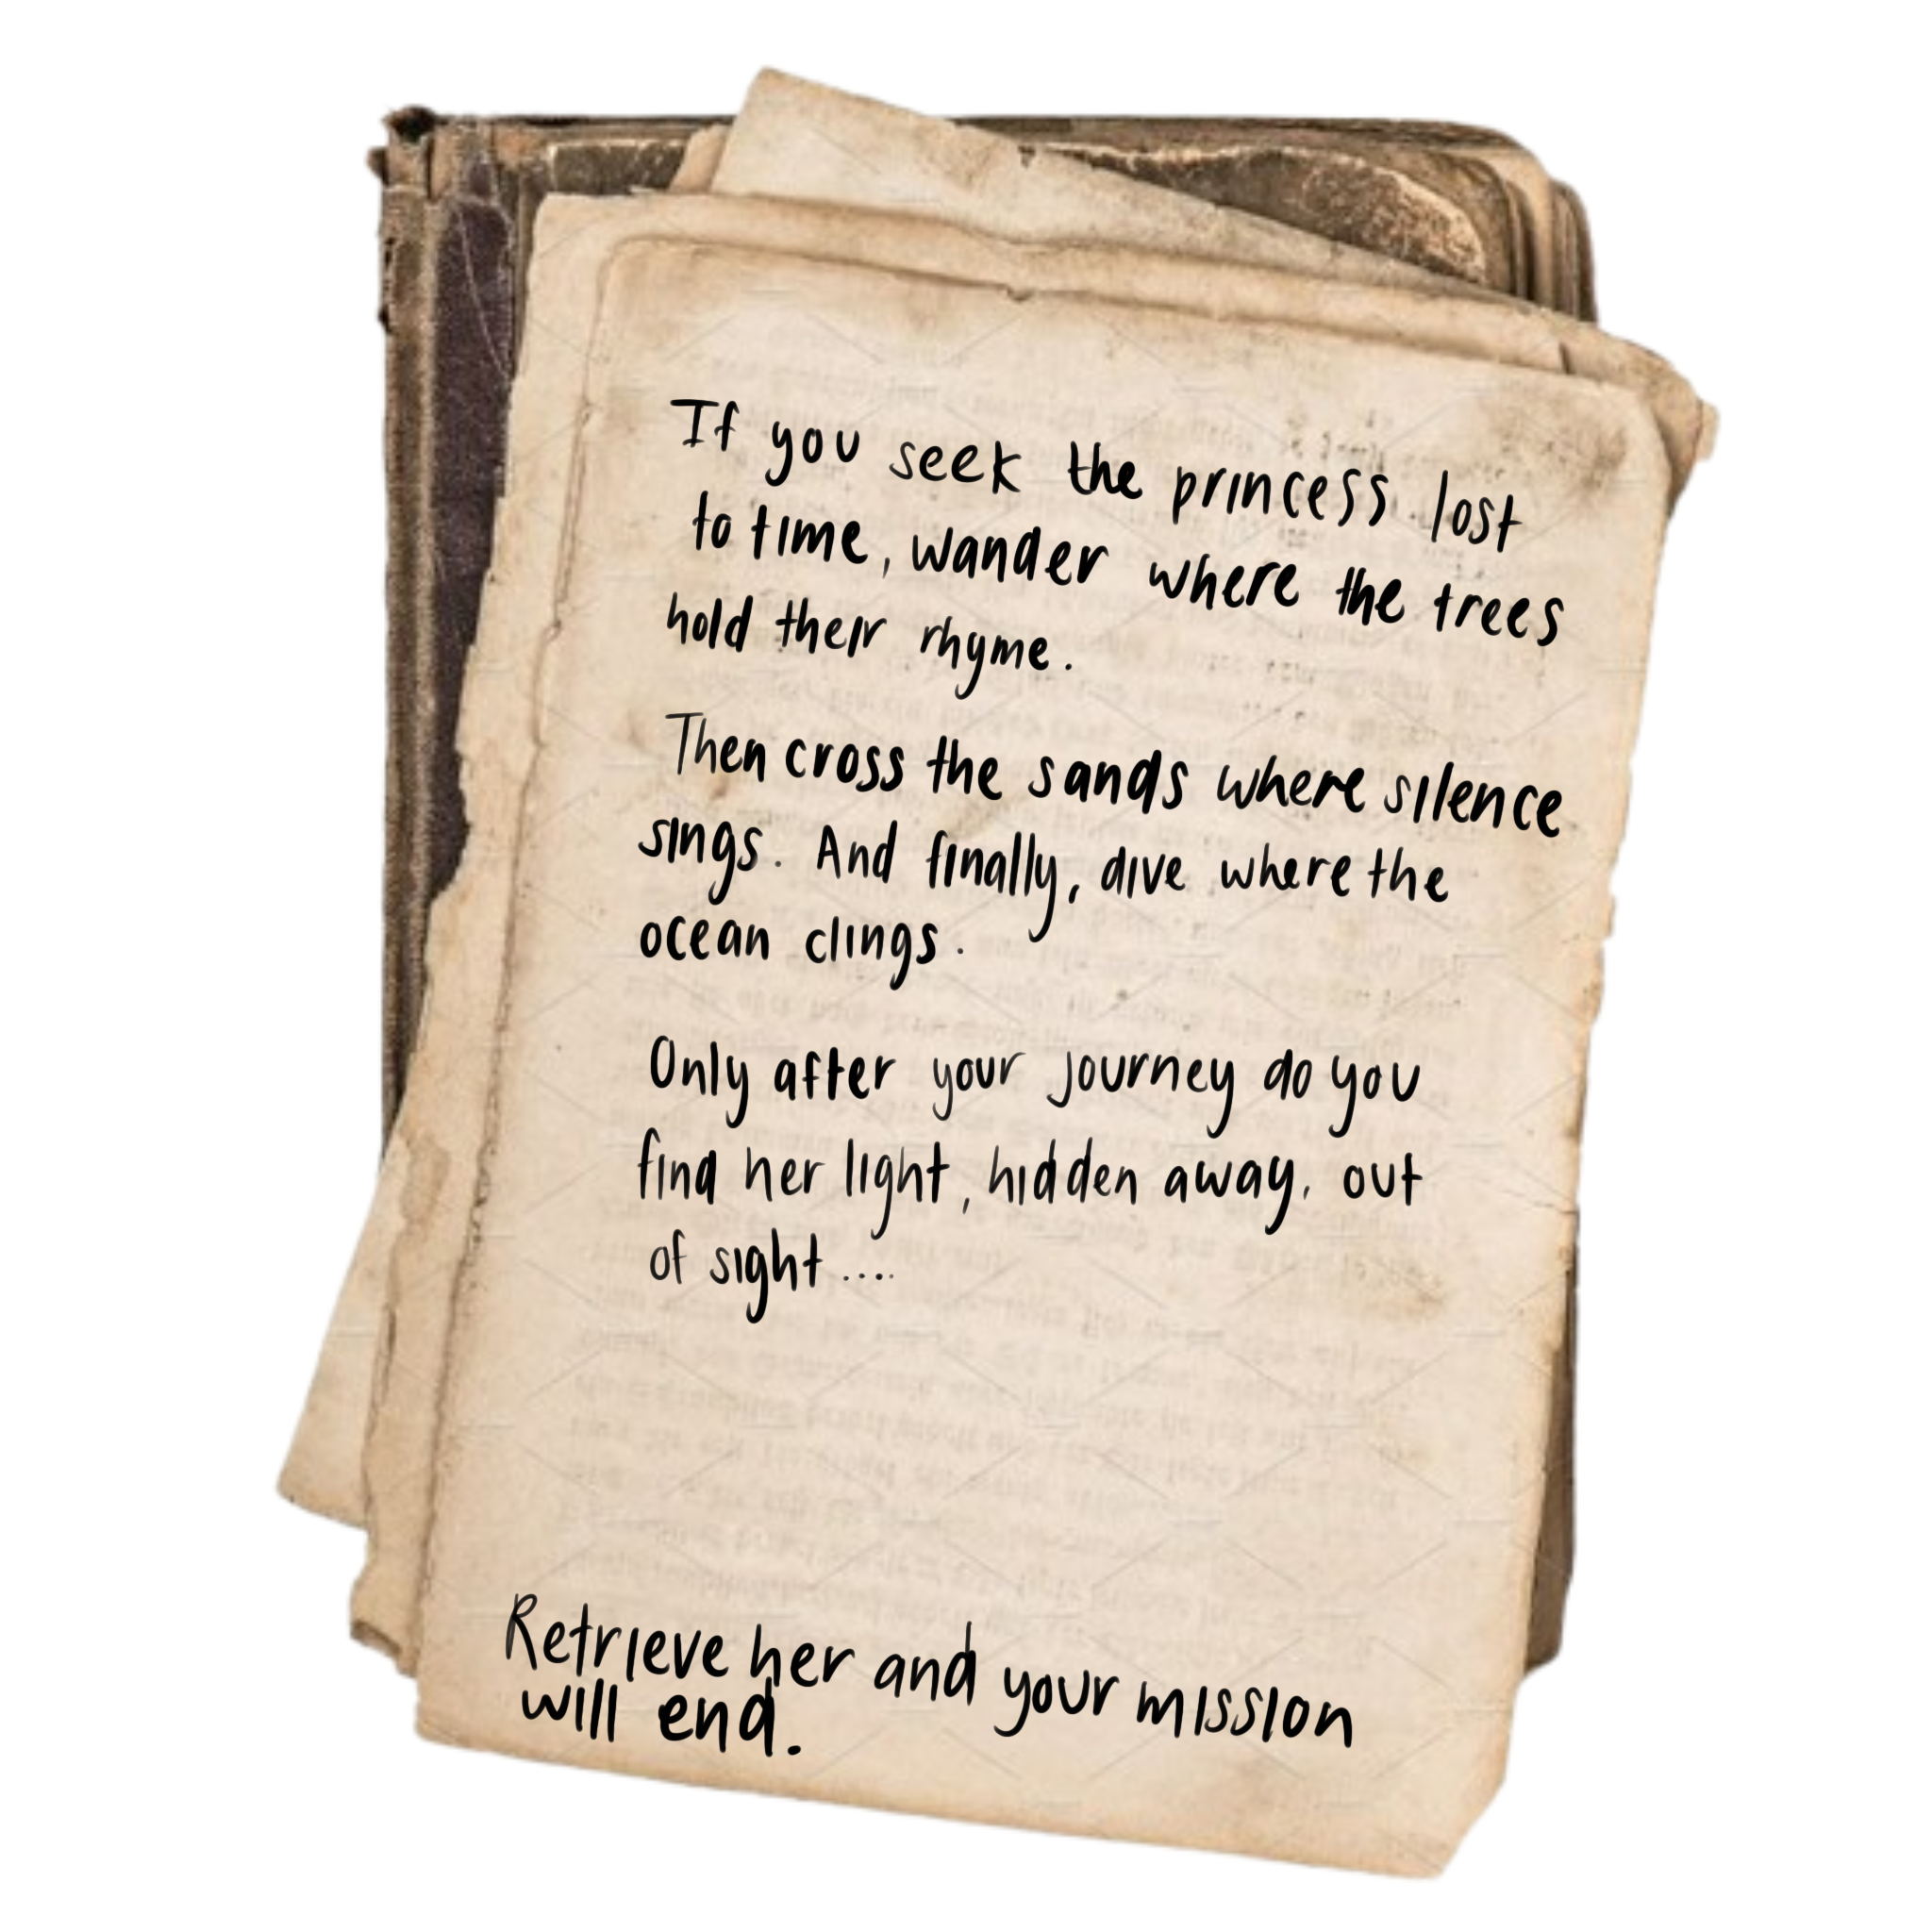 If you seek the princess lost
to time, wander where the trees
hold their rhyme.
Then cross the sands where silence
sings. And finally, dive where the
ocean clings.
Only after your journey do you
find her light, hidden away, out
of sight ....
Retrieve her and your mission
will end.